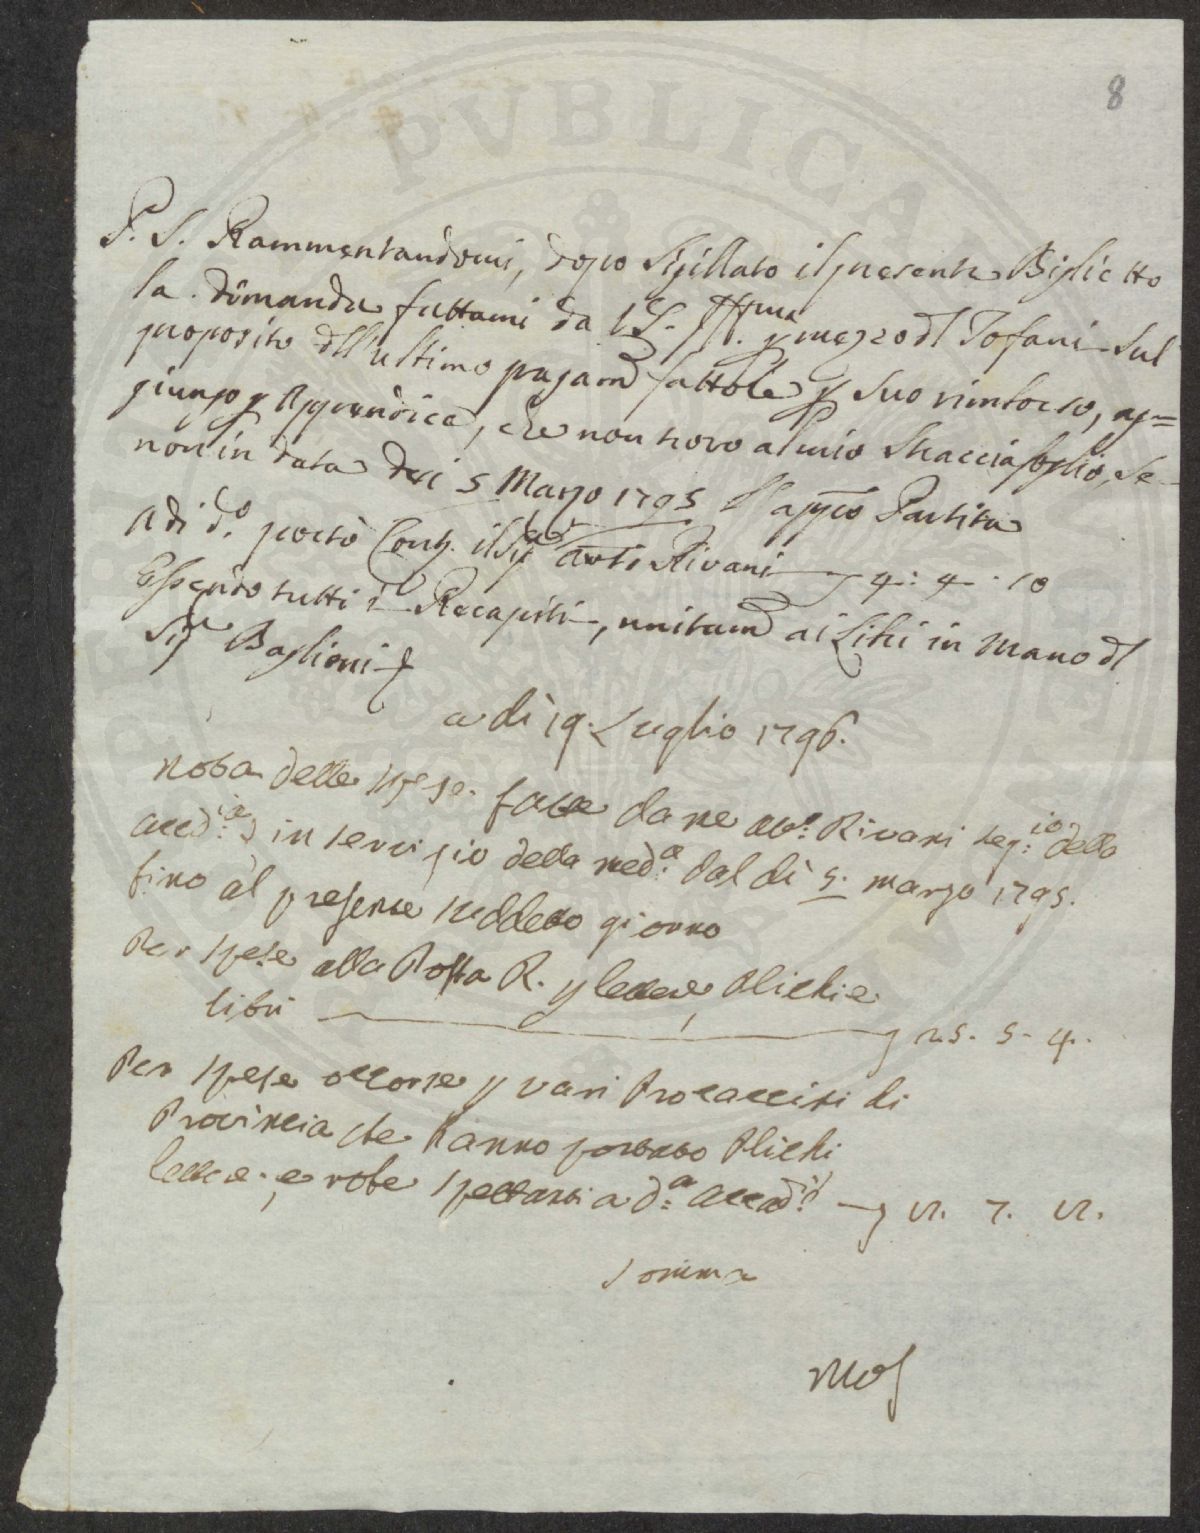 8
P. S. Rammentandomi, dopo Sigillato il presente Biglietto
la domanda fattami da VS. Ill.ma p mezzo dl Tofani sul
proposito dll'ultimo pagam.o fattole p suo rimborso, ag=
giungo p Appendice, che non trovo al mio Stracciafoglio, se
non in data dei 5 Marzo 1795 l'app.o Partita
A di d.o portò Cont. il Sig.r Avv.to Rivani 4: 4 : 10
Essendo tutti i Recapiti, unitam.e ai Libri in Mano dl
Sig.r Baglioni
a dì 19. Luglio 1796.
nota delle spese fatte da me Avv.o Rivani seg.rio della
accad.ia in servizio della med.a dal dì 5. marzo 1795.
fino al presente suddetto giorno
Per spese alla Posta R. p lettere, Plichi e
libri 25. 5. 4.
Per spese occorse p vari Procaccini di
Provincia che hanno portato Plichi
lettere, e robe spettanti a d.a accad.ia 12. 7. 12.
somma